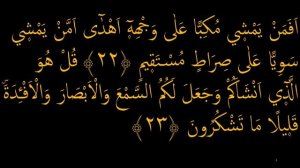 اَفَمَنْ يَمْشٖي مُكِبًّا عَلٰى وَجْهِهٖٓ اَهْدٰٓى اَمَّنْ يَمْشٖي
سَوِيًّا عَلٰى صِرَاطٍ مُسْتَقٖيمٍ ﴿٢٢﴾ قُلْ هُوَ
الَّذٖٓي اَنْشَاَكُمْ وَجَعَلَ لَكُمُ السَّمْعَ وَالْاَبْصَارَ وَالْاَفْـِٔدَةَۜ
قَلٖيلًا مَا تَشْكُرُونَ ﴿٢٣﴾